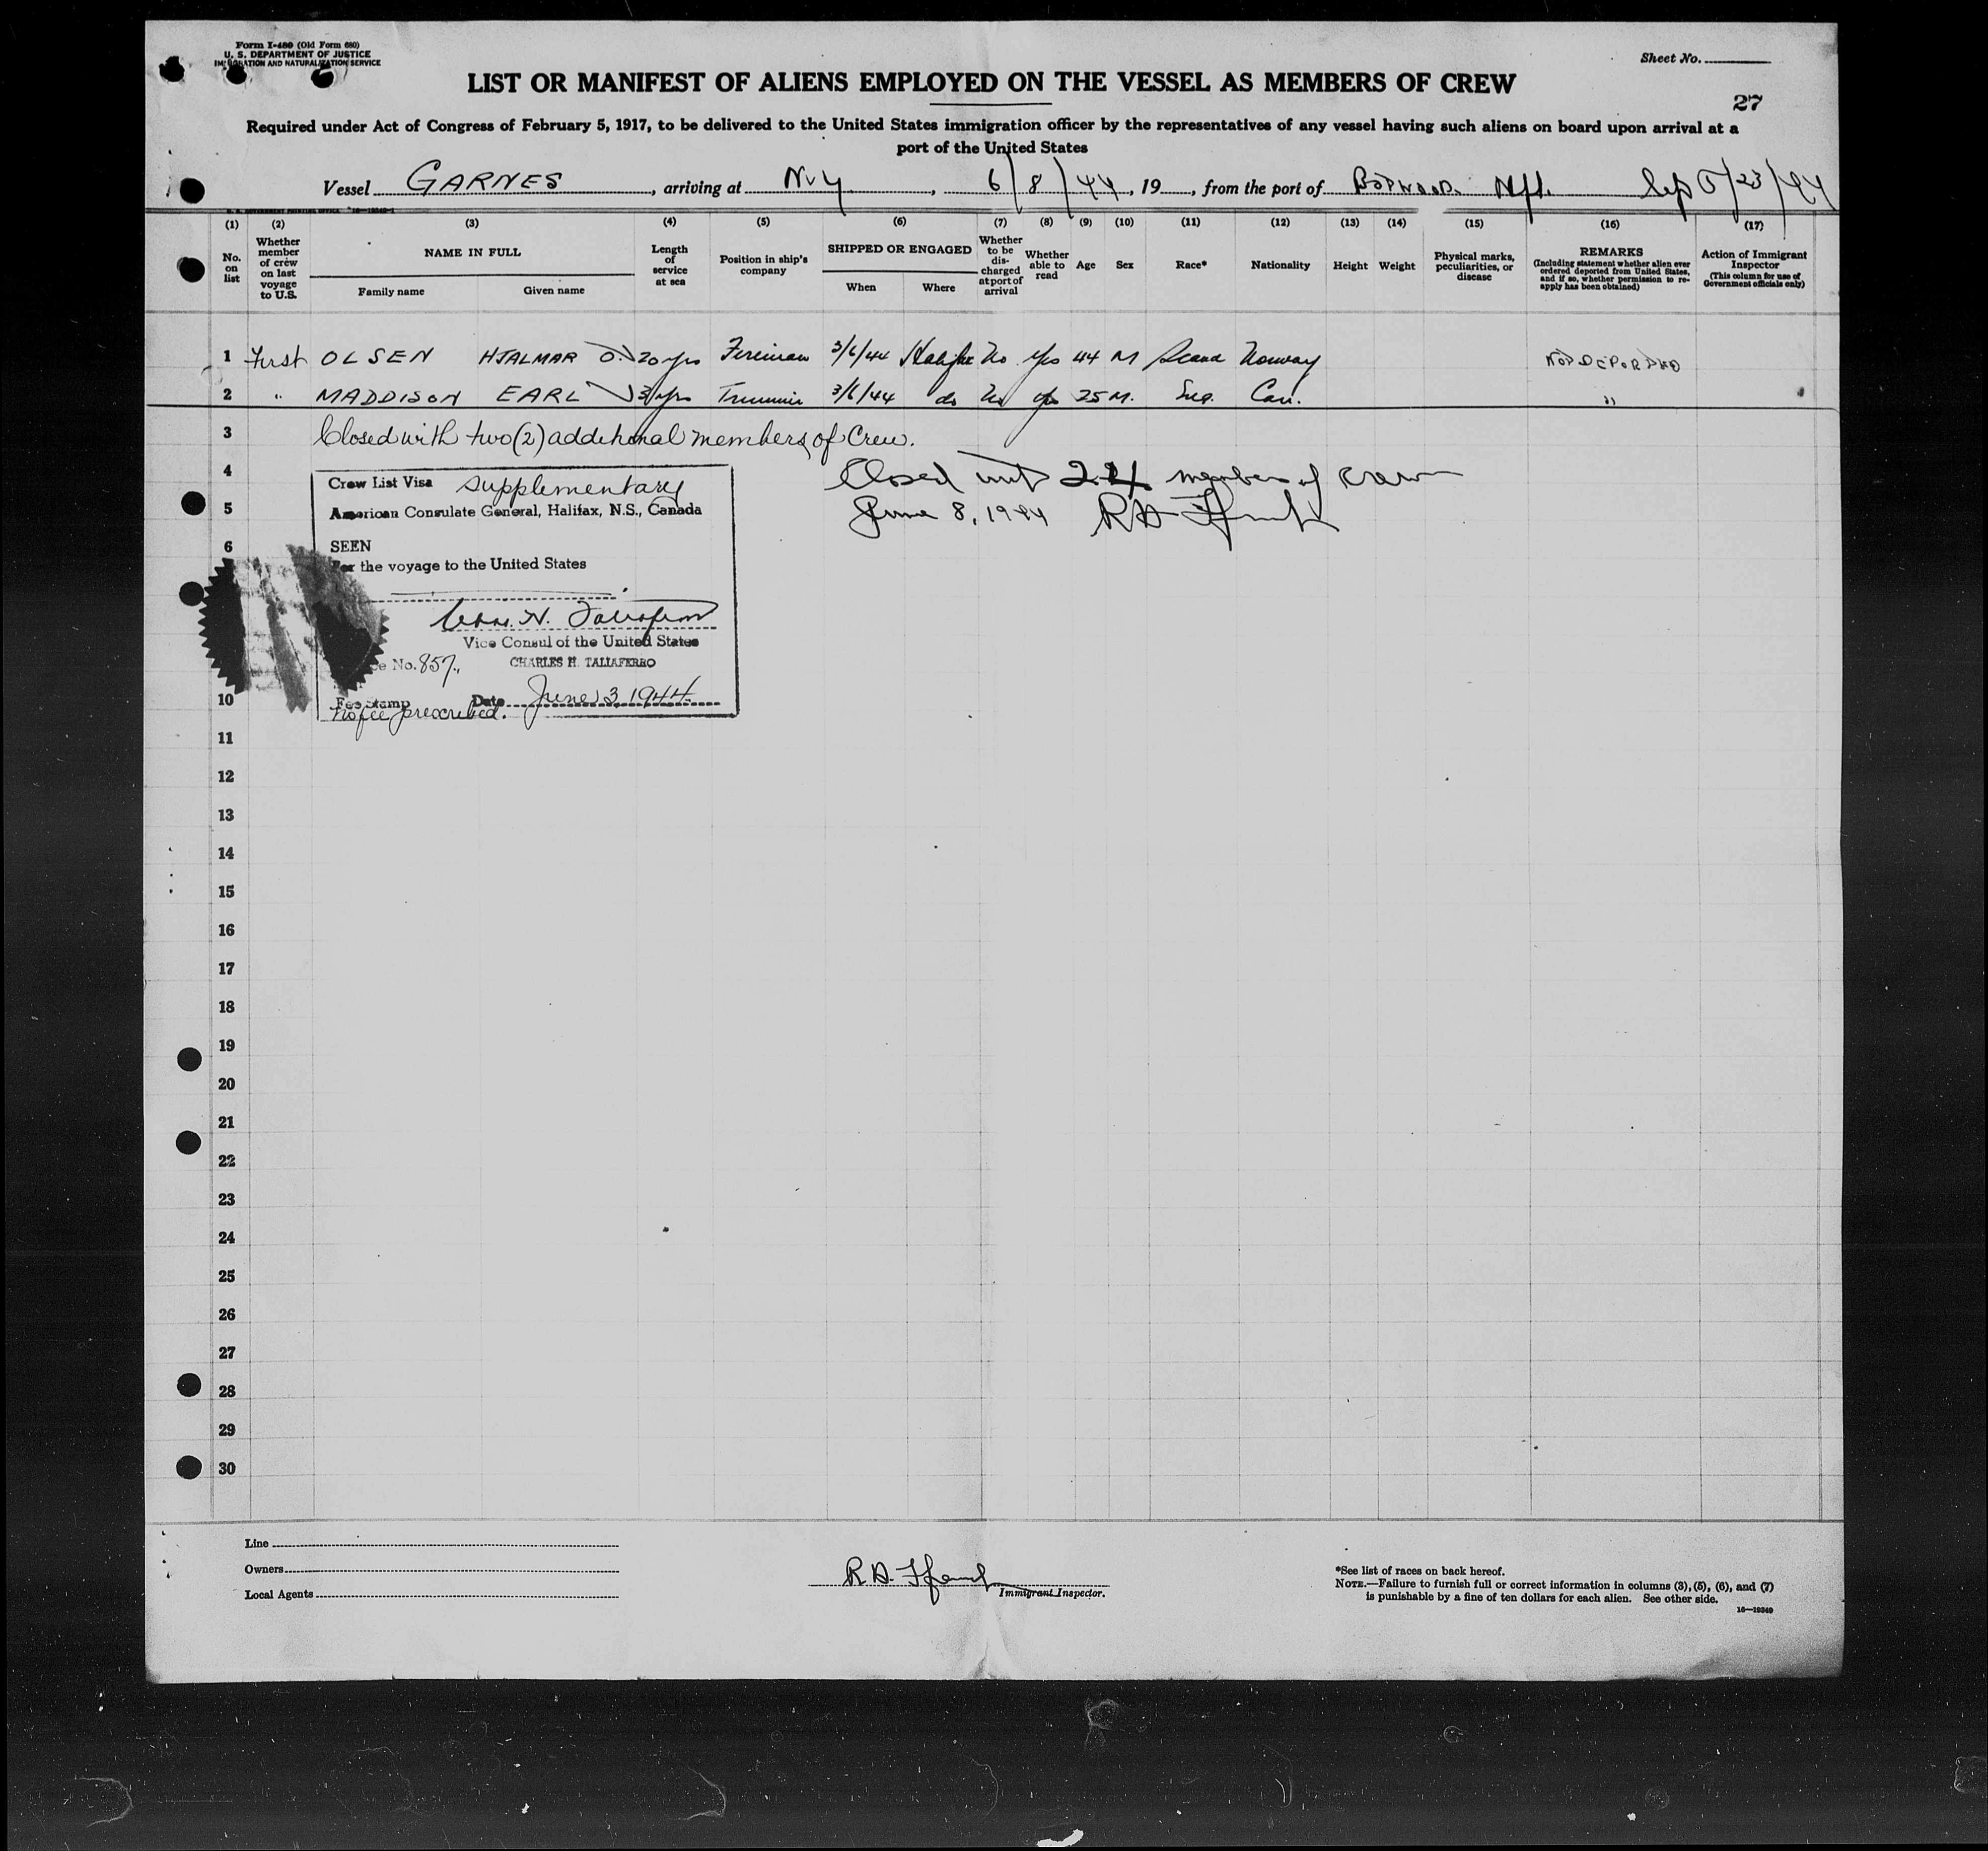 Form I-480 (Old Form 680)
U. S. DEPARTMENT OF JUSTICE
IMMIGRATION AND NATURALIZATION SERVICE
Sheet No.
LIST OR MANIFEST OF ALIENS EMPLOYED ON THE VESSEL AS MEMBERS OF CREW
27
Required under Act of Congress of February 5, 1917, to be delivered to the United States immigration officer by the representatives of any vessel having such aliens on board upon arrival at a
port of the United States
Vessel GARNES, arriving at N.Y, 6/8/44, 19, from the port of Botwood. Nfl. 5/23/44
(1) (2) (3) (4) (5) (6) (7) (8) (9) (10) (11) (12) (13) (14) (15) (16) (17)
No. on list
Whether member of crew on last voyage to U.S.
NAME IN FULL
Family name Given name
Length of service at sea
Position in ship's company
SHIPPED OR ENGAGED
When Where
Whether to be discharged at port of arrival
Whether able to read
Age
Sex
Race*
Nationality
Height
Weight
Physical marks, peculiarities, or disease
REMARKS
(Including statement whether alien ever ordered deported from United States, and if so, whether permission to re-apply has been obtained)
Action of Immigrant Inspector
(This column for use of Government officials only)
1 First OLSEN HJALMAR O. 20 yrs Fireman 3/6/44 Halifax No yes 44 M Scand Norway NOT DEPORTED
2 " MADDISON EARL 3 yrs Trimmer 3/6/44 do No yes 25 M. Eng. Can. "
3 Closed with two (2) additional members of Crew.
4 Closed with 24 members of crew
5 June 8, 1944
6
Crew List Visa supplementary
American Consulate General, Halifax, N.S., Canada
SEEN
For the voyage to the United States
Chas. H. Taliaferro
Vice Consul of the United States
CHARLES H. TALIAFERRO
No. 857.
Fee Stamp Date June 3, 1944
No fee prescribed.
10
11
12
13
14
15
16
17
18
19
20
21
22
23
24
25
26
27
28
29
30
Line
Owners
Local Agents
Immigrant Inspector.
*See list of races on back hereof.
NOTE.—Failure to furnish full or correct information in columns (3), (5), (6), and (7)
is punishable by a fine of ten dollars for each alien. See other side.
16—19349